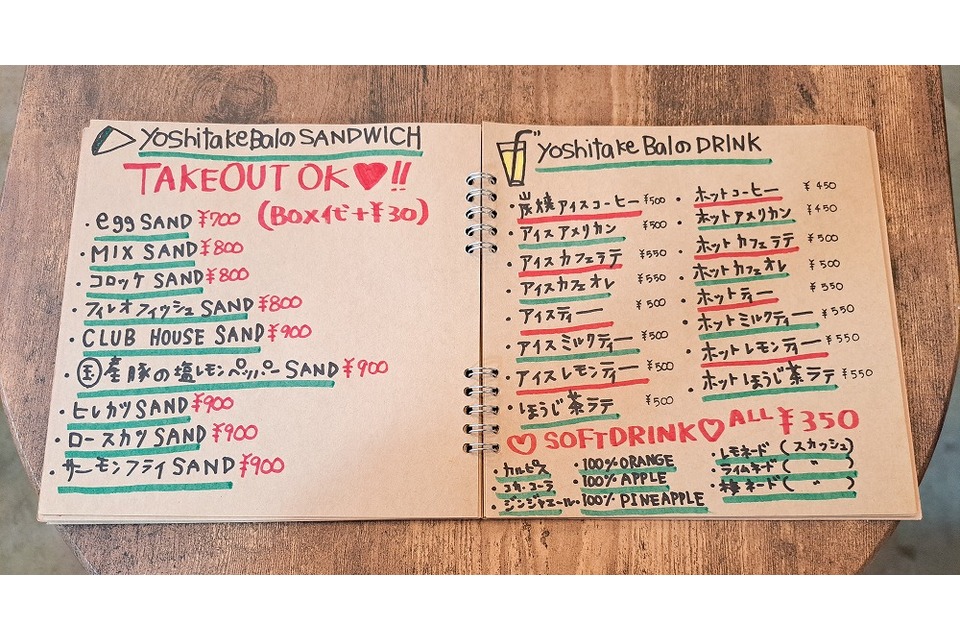 YoshitakeBalのSANDWICH
TAKEOUT OK♡!!
(BOX代+¥30)
・egg SAND ¥700
・MIX SAND ¥800
・コロッケ SAND ¥800
・フィレオフィッシュ SAND ¥800
・CLUB HOUSE SAND ¥900
・国産豚の塩レモンペッパー SAND ¥900
・ヒレカツ SAND ¥900
・ロースカツ SAND ¥900
・サーモンフライ SAND ¥900
Yoshitake BalのDRINK
・炭焼アイスコーヒー ¥500
・アイスアメリカン ¥500
・アイスカフェラテ ¥550
・アイスカフェオレ ¥550
・アイスティー ¥500
・アイスミルクティー ¥500
・アイスレモンティー ¥500
・ほうじ茶ラテ ¥500
・ホットコーヒー ¥450
・ホットアメリカン ¥450
・ホットカフェラテ ¥500
・ホットカフェオレ ¥500
・ホットティー ¥550
・ホットミルクティー ¥550
・ホットレモンティー ¥550
・ホットほうじ茶ラテ ¥550
♡SOFTDRINK♡ ALL ¥350
・カルピス
・コカ・コーラ
・ジンジャエール
・100% ORANGE
・100% APPLE
・100% PINEAPPLE
・レモネード(スカッシュ)
・ライムネード( 〃 )
・ネード( 〃 )